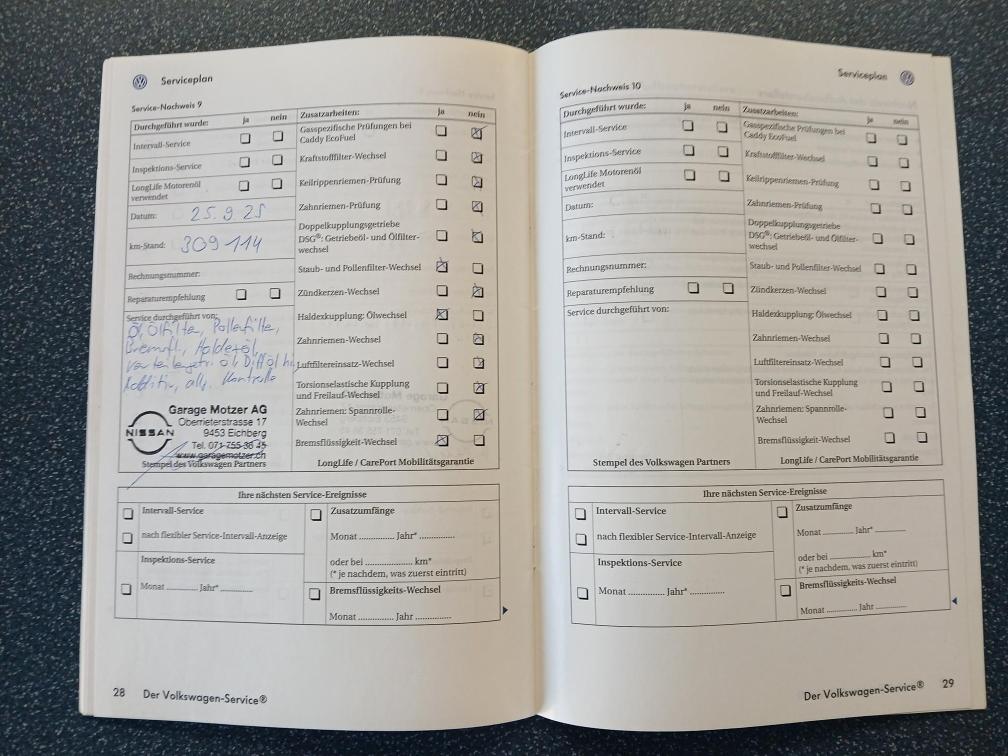 Serviceplan
Service-Nachweis 9
Durchgeführt wurde: ja nein
Intervall-Service
Inspektions-Service
LongLife Motorenöl
verwendet
Datum: 25.9.25
km-Stand: 309 114
Rechnungsnummer:
Reparaturempfehlung
Service durchgeführt von:
Öl, Ölfilter, Pollenfilter,
Bremsfl., Haldexöl,
Additiv, allg. Kontrolle
NISSAN
Garage Motzer AG
Oberrieterstrasse 17
9453 Eichberg
Tel. 071 755 36 45
www.garagemotzer.ch
Stempel des Volkswagen Partners
Zusatzarbeiten: ja nein
Gasspezifische Prüfungen bei
Caddy EcoFuel
Kraftstofffilter-Wechsel
Keilrippenriemen-Prüfung
Zahnriemen-Prüfung
Doppelkupplungsgetriebe
DSG®: Getriebeöl- und Ölfilter-
wechsel
Staub- und Pollenfilter-Wechsel
Zündkerzen-Wechsel
Haldexkupplung: Ölwechsel
Zahnriemen-Wechsel
Luftfiltereinsatz-Wechsel
Torsionselastische Kupplung
und Freilauf-Wechsel
Zahnriemen: Spannrolle-
Wechsel
Bremsflüssigkeit-Wechsel
LongLife / CarePort Mobilitätsgarantie
Ihre nächsten Service-Ereignisse
Intervall-Service
nach flexibler Service-Intervall-Anzeige
Inspektions-Service
Monat ............ Jahr* ............
Zusatzumfänge
Monat ............ Jahr* ............
oder bei ............ km*
(* je nachdem, was zuerst eintritt)
Bremsflüssigkeits-Wechsel
Monat ............ Jahr ............
28 Der Volkswagen-Service®
Serviceplan
Service-Nachweis 10
Durchgeführt wurde: ja nein
Intervall-Service
Inspektions-Service
LongLife Motorenöl
verwendet
Datum:
km-Stand:
Rechnungsnummer:
Reparaturempfehlung
Service durchgeführt von:
Stempel des Volkswagen Partners
Zusatzarbeiten: ja nein
Gasspezifische Prüfungen bei
Caddy EcoFuel
Kraftstofffilter-Wechsel
Keilrippenriemen-Prüfung
Zahnriemen-Prüfung
Doppelkupplungsgetriebe
DSG®: Getriebeöl- und Ölfilter-
wechsel
Staub- und Pollenfilter-Wechsel
Zündkerzen-Wechsel
Haldexkupplung: Ölwechsel
Zahnriemen-Wechsel
Luftfiltereinsatz-Wechsel
Torsionselastische Kupplung
und Freilauf-Wechsel
Zahnriemen: Spannrolle-
Wechsel
Bremsflüssigkeit-Wechsel
LongLife / CarePort Mobilitätsgarantie
Ihre nächsten Service-Ereignisse
Intervall-Service
nach flexibler Service-Intervall-Anzeige
Inspektions-Service
Monat ............ Jahr* ............
Zusatzumfänge
Monat ............ Jahr* ............
oder bei ............ km*
(* je nachdem, was zuerst eintritt)
Bremsflüssigkeits-Wechsel
Monat ............ Jahr ............
Der Volkswagen-Service® 29